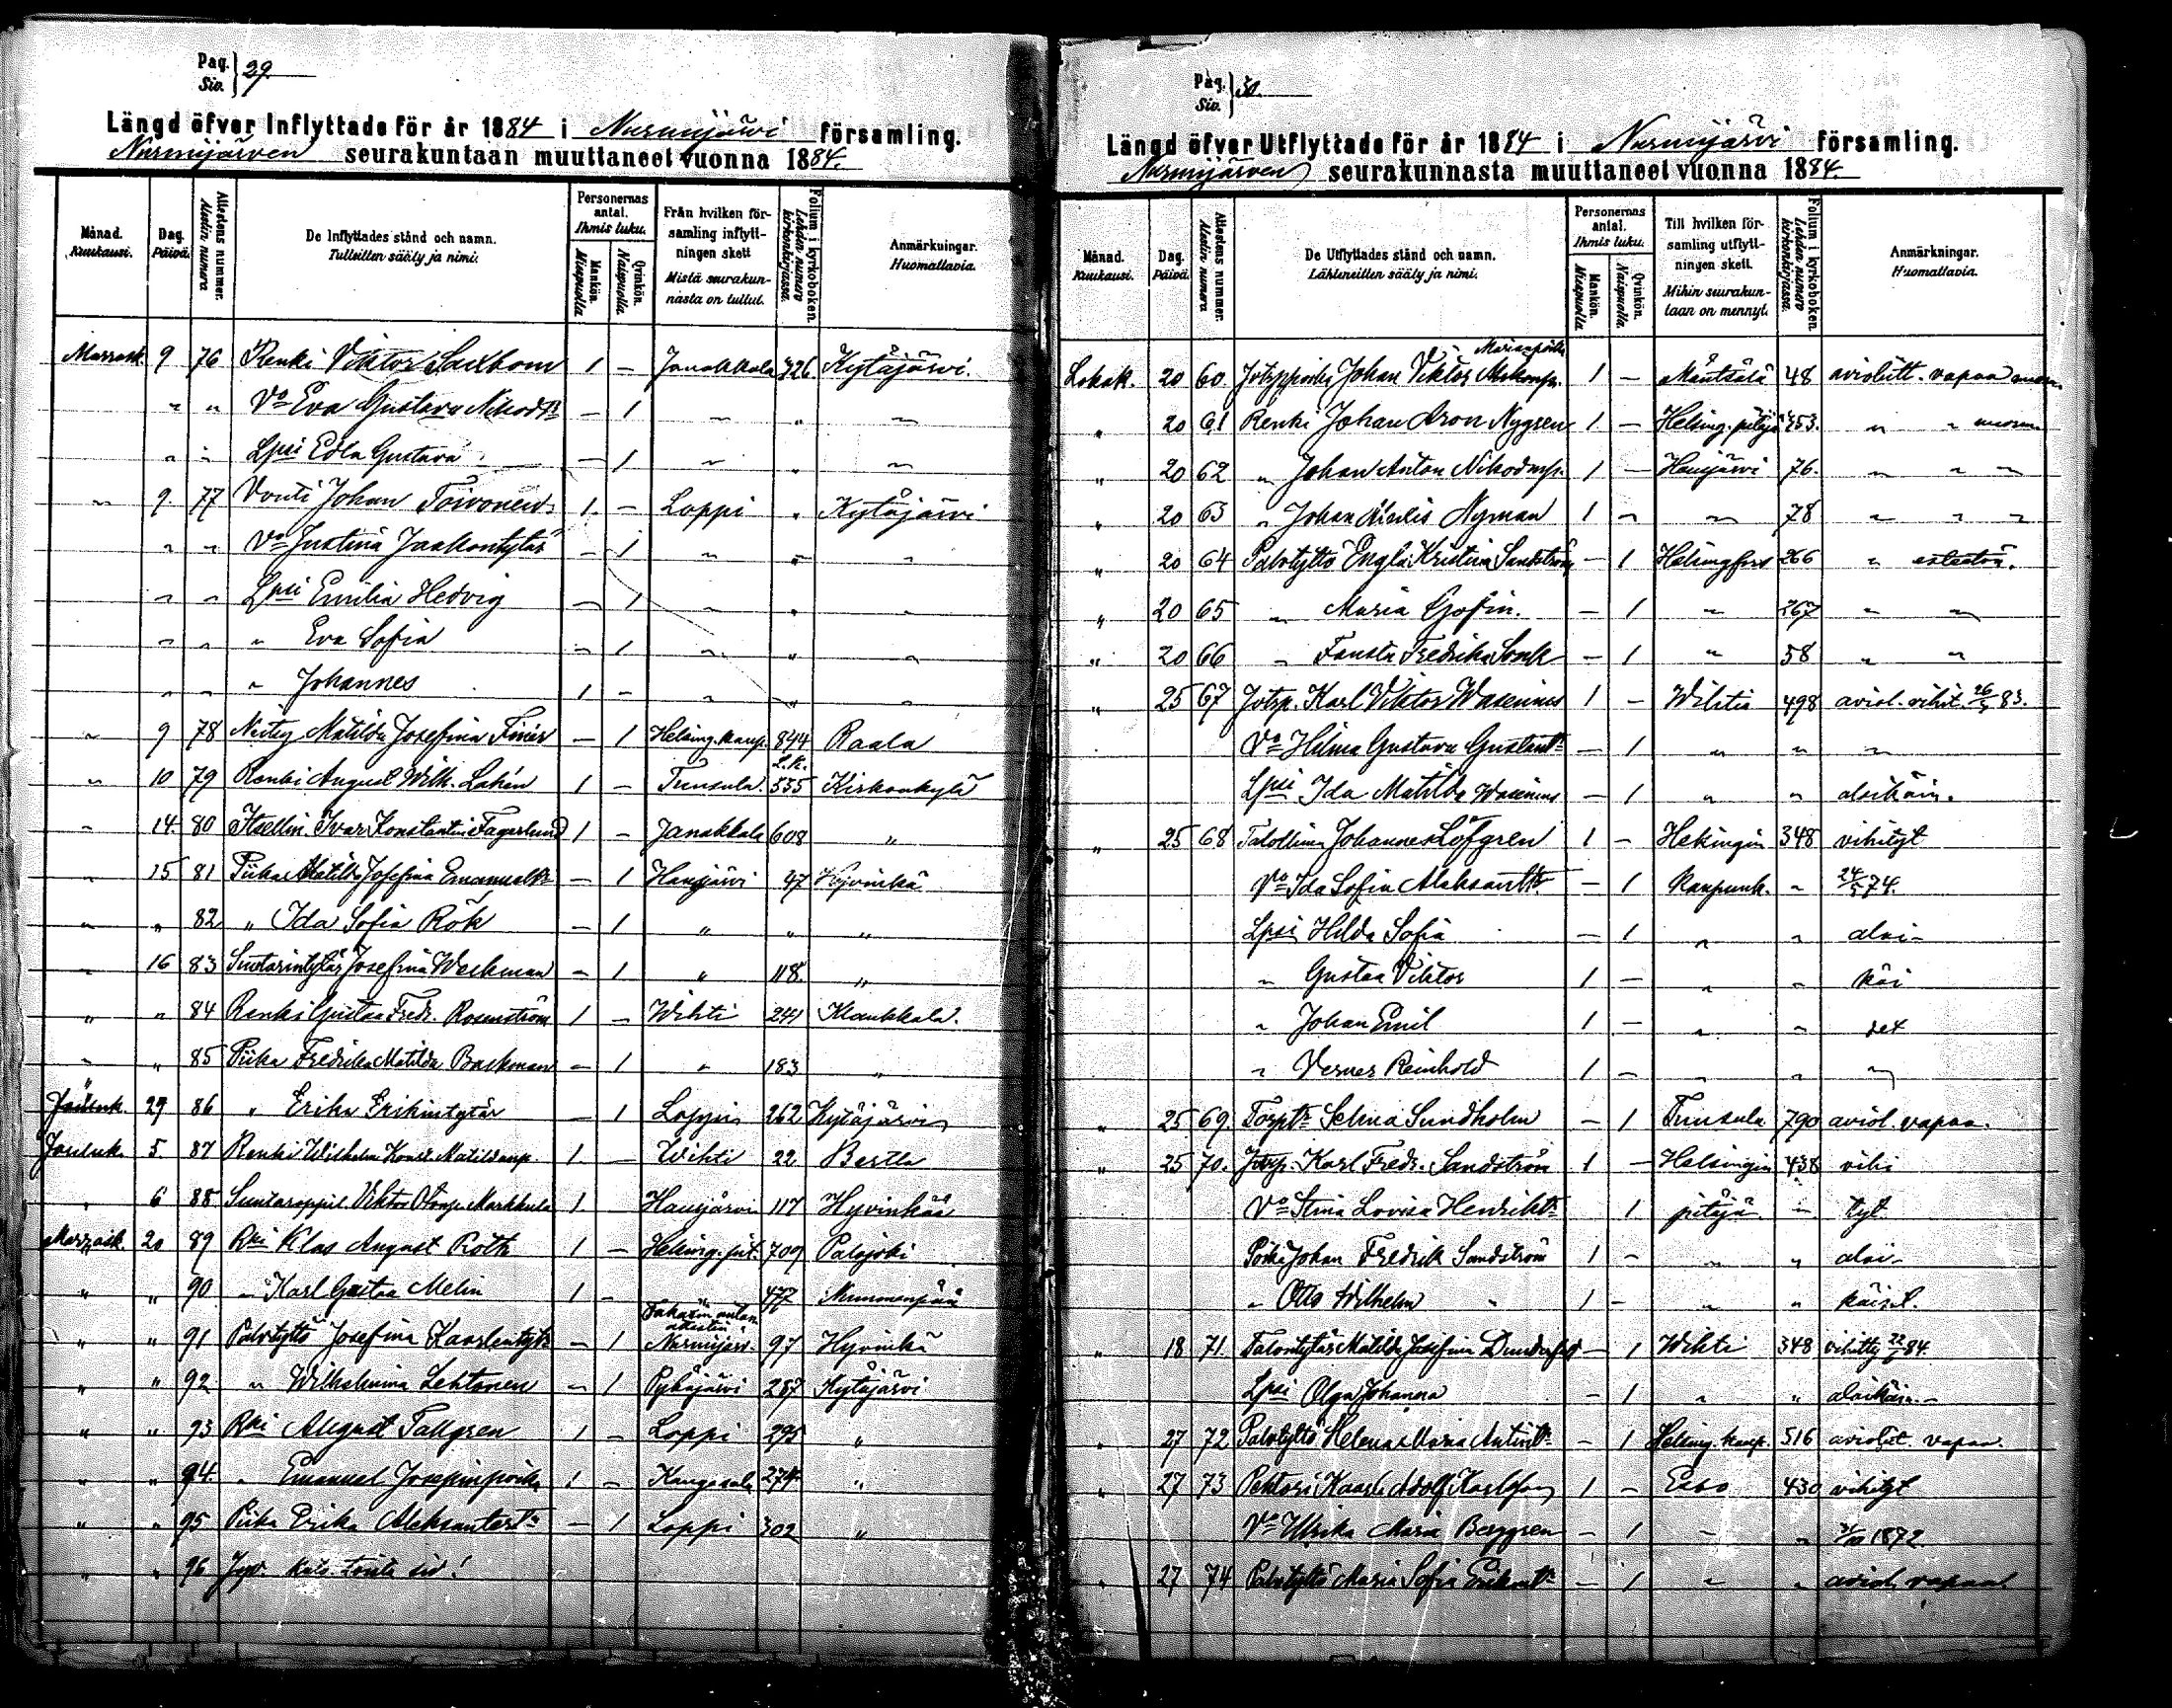 Pag. Siv. } 29.
Längd öfver Inflyttade för år 1884 i Nurmijärvi församling.
Nurmijärven seurakuntaan muuttaneet vuonna 1884.
Månad. Kuukausi.
Dag. Päivä.
Attestens nummer. Alestin numero
De Inflyttades stånd och namn. Tulleitten sääty ja nimi.
Personernas antal. Ihmis luku.
Mankön. Miespuolia
Qvinkön. Naispuolia.
Från hvilken församling inflyttningen skett Mistä seurakunnasta on tullut.
Folium i kyrkoboken. Lehden numero kirkonkirjassa.
Anmärkningar. Huomattavia.
Marrask. 9 76 Renki Viktor Saxbom 1 – Janakkala 326. Kytäjärvi.
" " Vo Eva Gustava Nikod – 1 " " "
" " Lpsi Edla Gustava – 1 " " "
" 9. 77 Vouti Johan Toivonen 1. – Loppi " Kytäjärvi
" " Vo Justina Jaakontytär – 1 " " "
" " Lpsi Emilia Hedvig – 1 " " "
" " " Eva Sofia – 1 " " "
" " " Johannes 1 – " " "
" 9 78 Neitsy Matilda Josefina – 1 Helsing. kaup. 844 Raala
" 10 79 Renki August Wilh. Lahén 1 – Tuusula. L.k. 535 Kirkonkylä
" 14. 80 Itsellin. Ivar Konstantin Fagerlund 1 – Janakkala 608 "
" 15 81 Piika Matilda Josefina Emanuelt – 1 Hausjärvi 47 Hyvinkä
" " 82 " Ida Sofia Rök – 1 " " "
" 16 83 Suutarintytär Josefina Weckman – 1 " 118. "
" " 84 Renki Gustaa Fredr. Rosenström 1 – Wihti 241 Klaukkala.
" " 85 Piika Fredrika Matilda Backman – 1 " 183 "
29 86 " Erika Erikintytär – 1 Loppi 262 Kytäjärvi
Jouluk. 5 87 Renki Wilhelm Konst. Matildanp. 1. Wihti 22 Bertla
" 6 88. Suutaroppil. Viktor Markkula 1 Hausjärvi 117 Hyvinkää
Marrask. 20 89 Rki Klas August Roth 1 – Helsing. pit. 709 Palojoki
" " 90 " Karl Gustaa Melin 1 – " 477 Nummenpää
" " 91 Palvtyttö Josefina Kaarlentyt – 1 Nurmijärv. 97 Hyvinkä
" " 92 " Wilhelmina Lehtonen – 1 Pyhäjärvi 287 Kytäjärvi
" " 93 Rki August Tallgren 1 – Loppi 295 "
" " 94. " Emanuel Josefinpoika 1 – Kangasala 274 "
" " 95 Piika Erika Aleksanter – 1 Loppi 302 "
" " 96 kats. toista siv!
Pag. Siv. } 30.
Längd öfver Utflyttade för år 1884 i Nurmijärvi församling.
Nurmijärven seurakunnasta muuttaneet vuonna 1884.
Månad. Kuukausi.
Dag. Päivä.
Attestens nummer. Alestin numero
De Utflyttades stånd och namn. Lähteneitten sääty ja nimi.
Personernas antal. Ihmis luku.
Mankön. Miespuolia
Qvinkön. Naispuolia.
Till hvilken församling utflyttningen skett. Mihin seurakuntaan on mennyt.
Folium i kyrkoboken. Lehden numero kirkonkirjassa.
Anmärkningar. Huomattavia.
Lokak. 20 60 Johan Viktor 1 – Mäntsälä 48 avioliitt. vapaa
" 20 61 Renki Johan Aron Nygren 1. – Helsing. pitäjä 453. " "
" 20 62 " Johan Anton Nikodemp. 1 – Hausjärvi 76. " " "
" 20 63 " Johan Nyman 1 " " 78 " " "
" 20 64 Palvtyttö Engla Kristina Sandström – 1 Helsingfors 266 " esteetön.
" 20 65 " Maria – 1 " 267 " "
" 20 66 " Fausta Fredrika – 1 " 58 " "
" 25 67 Jotrp. Karl Viktor Wasenius 1 – Wihtiä 498 aviol. vihit. 83.
Vo Hilma Gustava – 1 " " "
Lpsi Ida Matilda Wasenius – 1 " " alaikäin.
" 25 68 Talollinen Johannes Löfgren 1 – Helsingin 348 vihityt
Vo Ida Sofia Aleksant – 1 kaupunk. " 24/5 74.
Lpsi Hilda Sofia – 1 " " alai-
" Gustaa Viktor 1 – " " käi
" Johan Emil 1 – " " set
" Verner Reinhold 1 – " " "
" 25 69. Torpt Selma Sundholm – 1 Tuusula 790 aviol. vapaa.
" 25 70. Jotrp. Karl Fredr. Sandström 1 – Helsingin 438 vihi
Vo Stina Lovisa Henrikt 1 pitäjä " tyt
Poika Johan Fredrik Sandström 1 – " " alai-
" Otto Wilhelm " 1 – " " käiset.
" 18 71. Talontytär Matilda Josefina – 1 Wihti 348 vihitty 84.
Lpsi Olga Johanna – 1 " " alaikäin.
" 27 72 Palvtyttö Helena Maria Antint – 1 Helsing. kaup. 516 aviolit. vapaa.
" 27 73 Kaarle Adolf Karlsson 1 – Esbo 430 vihityt
Vo Ulrika Maria Berggren – 1 " " 1872.
" 27 74 Palvtyttö Maria Sofia – 1 " " aviol. vapaa